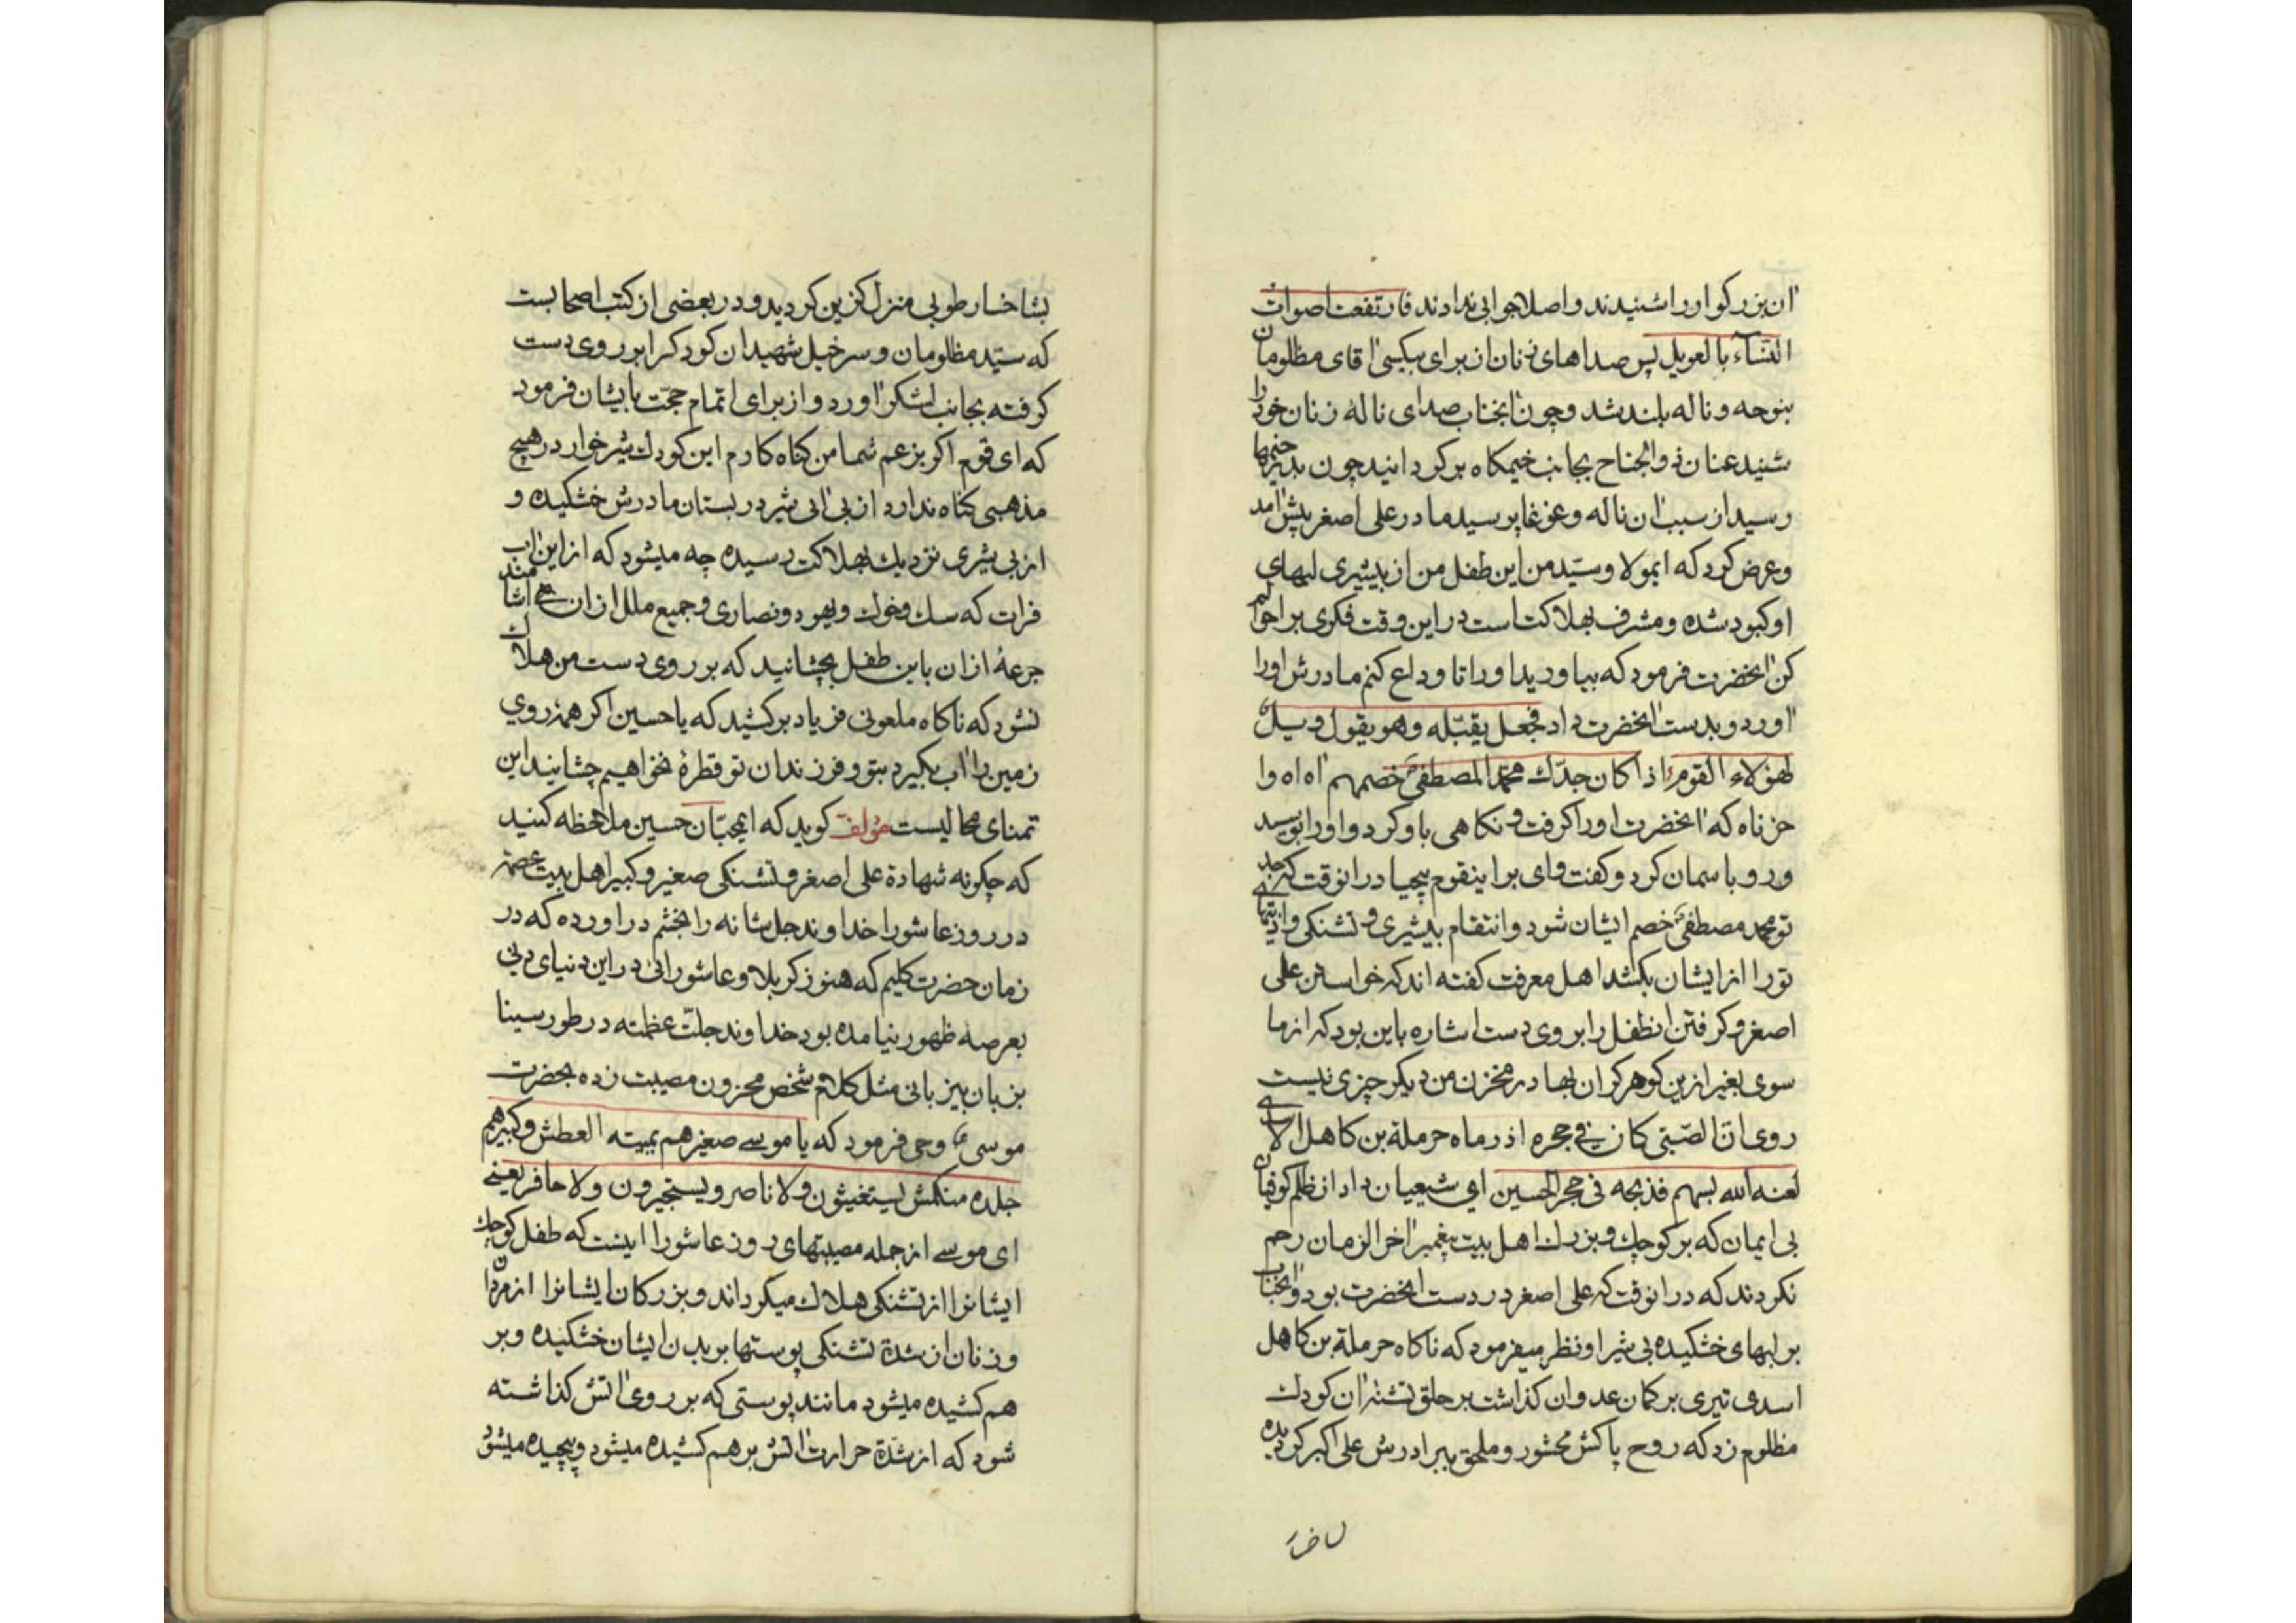 ان بزرکوار را شنیدند و اصلا جوابی ندادند فارتفعت اصوات
النسآء بالعویل پس صداهای زنان از برای بیکسی اقای مظلومان
بنوحه و ناله بلند شد و چون انجناب صدای ناله زنان خود را
شنید عنان ذوالجناح بجانب خیمکاه برکردانید چون بدر خیمها
رسید از سبب ان ناله و غوغا پرسید مادر علی اصغر پیش امد
و عرض کرد که ایمولا و سیّد من این طفل من از بیشیری لبهای
او کبود شده و مشرف بهلاکت است در این وقت فکری بر احوالم
کن انحضرت فرمود که بیاورید او را تا وداع کنم مادرش او را
اورد و بدست انحضرت داد فجعل یقبّله و هو یقول ویل
لهؤلاء القوم اذا کان جدّك محمّد المصطفی خصمهم اه اه وا
حزناه که انحضرت او را کرفت و نکاهی باو کرد و او را بوسید
و رو باسمان کرد و کفت وای بر اینقوم بیحیا در انوقت که جد
تو محمد مصطفی خصم ایشان شود و انتقام بیشیری و تشنکی و اذیتهای
تو را از ایشان بکشد اهل معرفت کفته اند که خواستن علی
اصغر و کرفتن انطفل را بر روی دست اشاره باین بود که از ما
سوی بغیر ازین کوهر کران بها در مخزن من دیکر چیزی نیست
روی انّ الصّبی کان فی حجره اذ رماه حرملة بن کاهل الاسدی
لعنه الله بسهم فذبحه فی حجر الحسین ای شیعیان داد از ظلم کوفیان
بی ایمان که بر کوچك و بزرك اهل بیت پیغمبر اخر الزمان رحم
نکردند که در انوقت که علی اصغر در دست انحضرت بود و انجناب
بر لبهای خشکیده بی شیر او نظر میفرمود که ناکاه حرملة بن کاهل
اسدی تیری بر کمان عدوان کذاشت بر حلق تشنه ان کودك
مظلوم زد که روح پاکش محشور و ملحق ببرادرش علی اکبر کردیده
بشاخسار طوبی منزل کزین کردید و در بعضی از کتب اصحابست
که سیّد مظلومان و سرخیل شهیدان کودك را بر روی دست
کرفته بجانب لشکر اورد و از برای اتمام حجّت بایشان فرمود
که ای قوم اکر بزعم شما من کناه کارم این کودك شیرخوار در هیچ
مذهبی کناه ندارد از بی ابی شیر در پستان مادرش خشکیده و
از بی شیری نزدیك بهلاکت رسیده چه میشود که از این اب
فرات که سك و خوك و یهود و نصاری و جمیع ملل از ان می اشامند
جرعۀ از ان باین طفل بچشانید که بر روی دست من هلاك
نشود که ناکاه ملعونی فریاد برکشید که یا حسین اکر همۀ روی
زمین را اب بکیرد بتو و فرزندان تو قطرۀ نخواهیم چشانید این
تمنای محالیست مؤلف کوید که ایمحبّان حسین ملاحظه کنید
که چکونه شهادة علی اصغر و تشنکی صغیر و کبیر اهل بیت عصمة
در روز عاشورا خداوند جل شانه را بخشم در اورده که در
زمان حضرت کلیم که هنوز کربلا و عاشورائی در این دنیای دنی
بعرصه ظهور نیامده بود خداوند جلّت عظمته در طور سینا
بزبان بیزبانی مثل کلام شخص محزون مصیبت زده بحضرت
موسی وحی فرمود که یا موسی صغیرهم یمیته العطش و کبیرهم
جلده منکمش یستغیثون ولا ناصر ویستجیرون ولا حافر یعنی
ای موسی از جمله مصیبتهای روز عاشورا اینست که طفل کوچك
ایشانرا از تشنکی هلاك میکرداند و بزرکان ایشانرا از مردان
و زنان از شدة تشنکی پوستها بر بدن ایشان خشکیده و بر
هم کشیده میشود مانند پوستی که بر روی اتش کذاشته
شود که از شدّة حرارت اتش بر هم کشیده میشود و پیچیده میشود